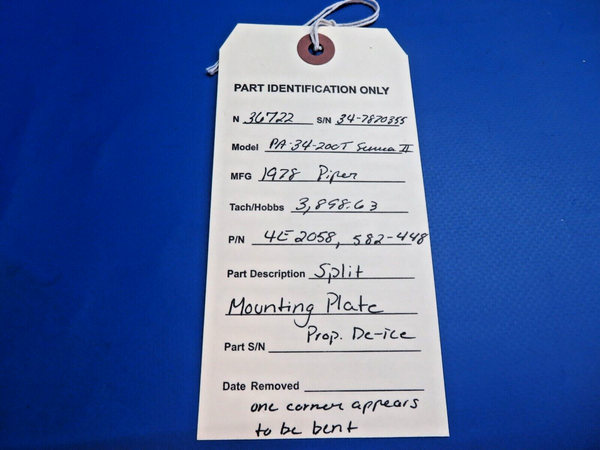 PART IDENTIFICATION ONLY
N 36722 S/N 34-7870355
Model PA-34-200T Seneca II
MFG 1978 Piper
Tach/Hobbs 3,898.63
P/N 4E2058, 582-448
Part Description Split
Mounting Plate
Prop. De-ice
Part S/N
Date Removed
one corner appears
to be bent